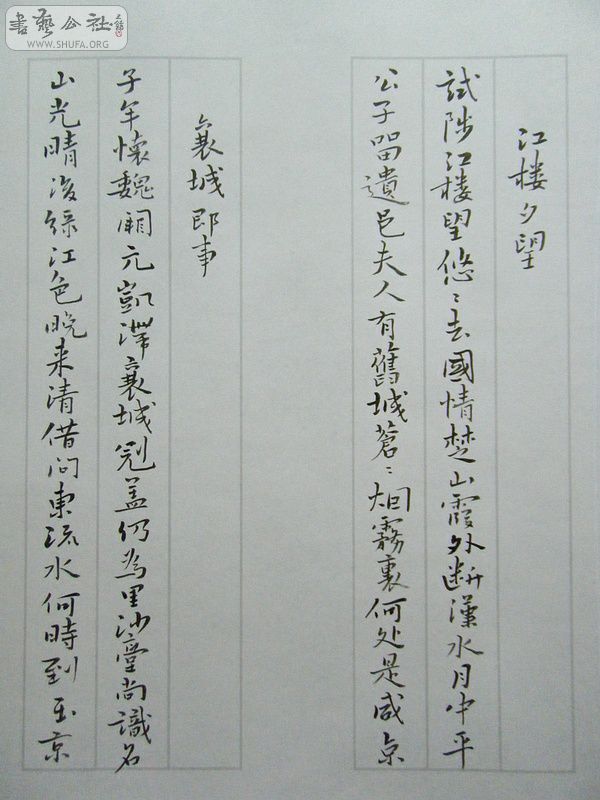 書藝公社
WWW.SHUFA.ORG
江楼夕望
試陟江楼望悠〻去國情楚山霞外断漢水月中平
公子留遺邑夫人有舊城蒼〻烟霧裏何处是咸京
襄城即事
子牟懷魏闕元凱滯襄城冠蓋仍為里沙臺尚識名
山光晴後緑江色晚来清借问東流水何時到玉京